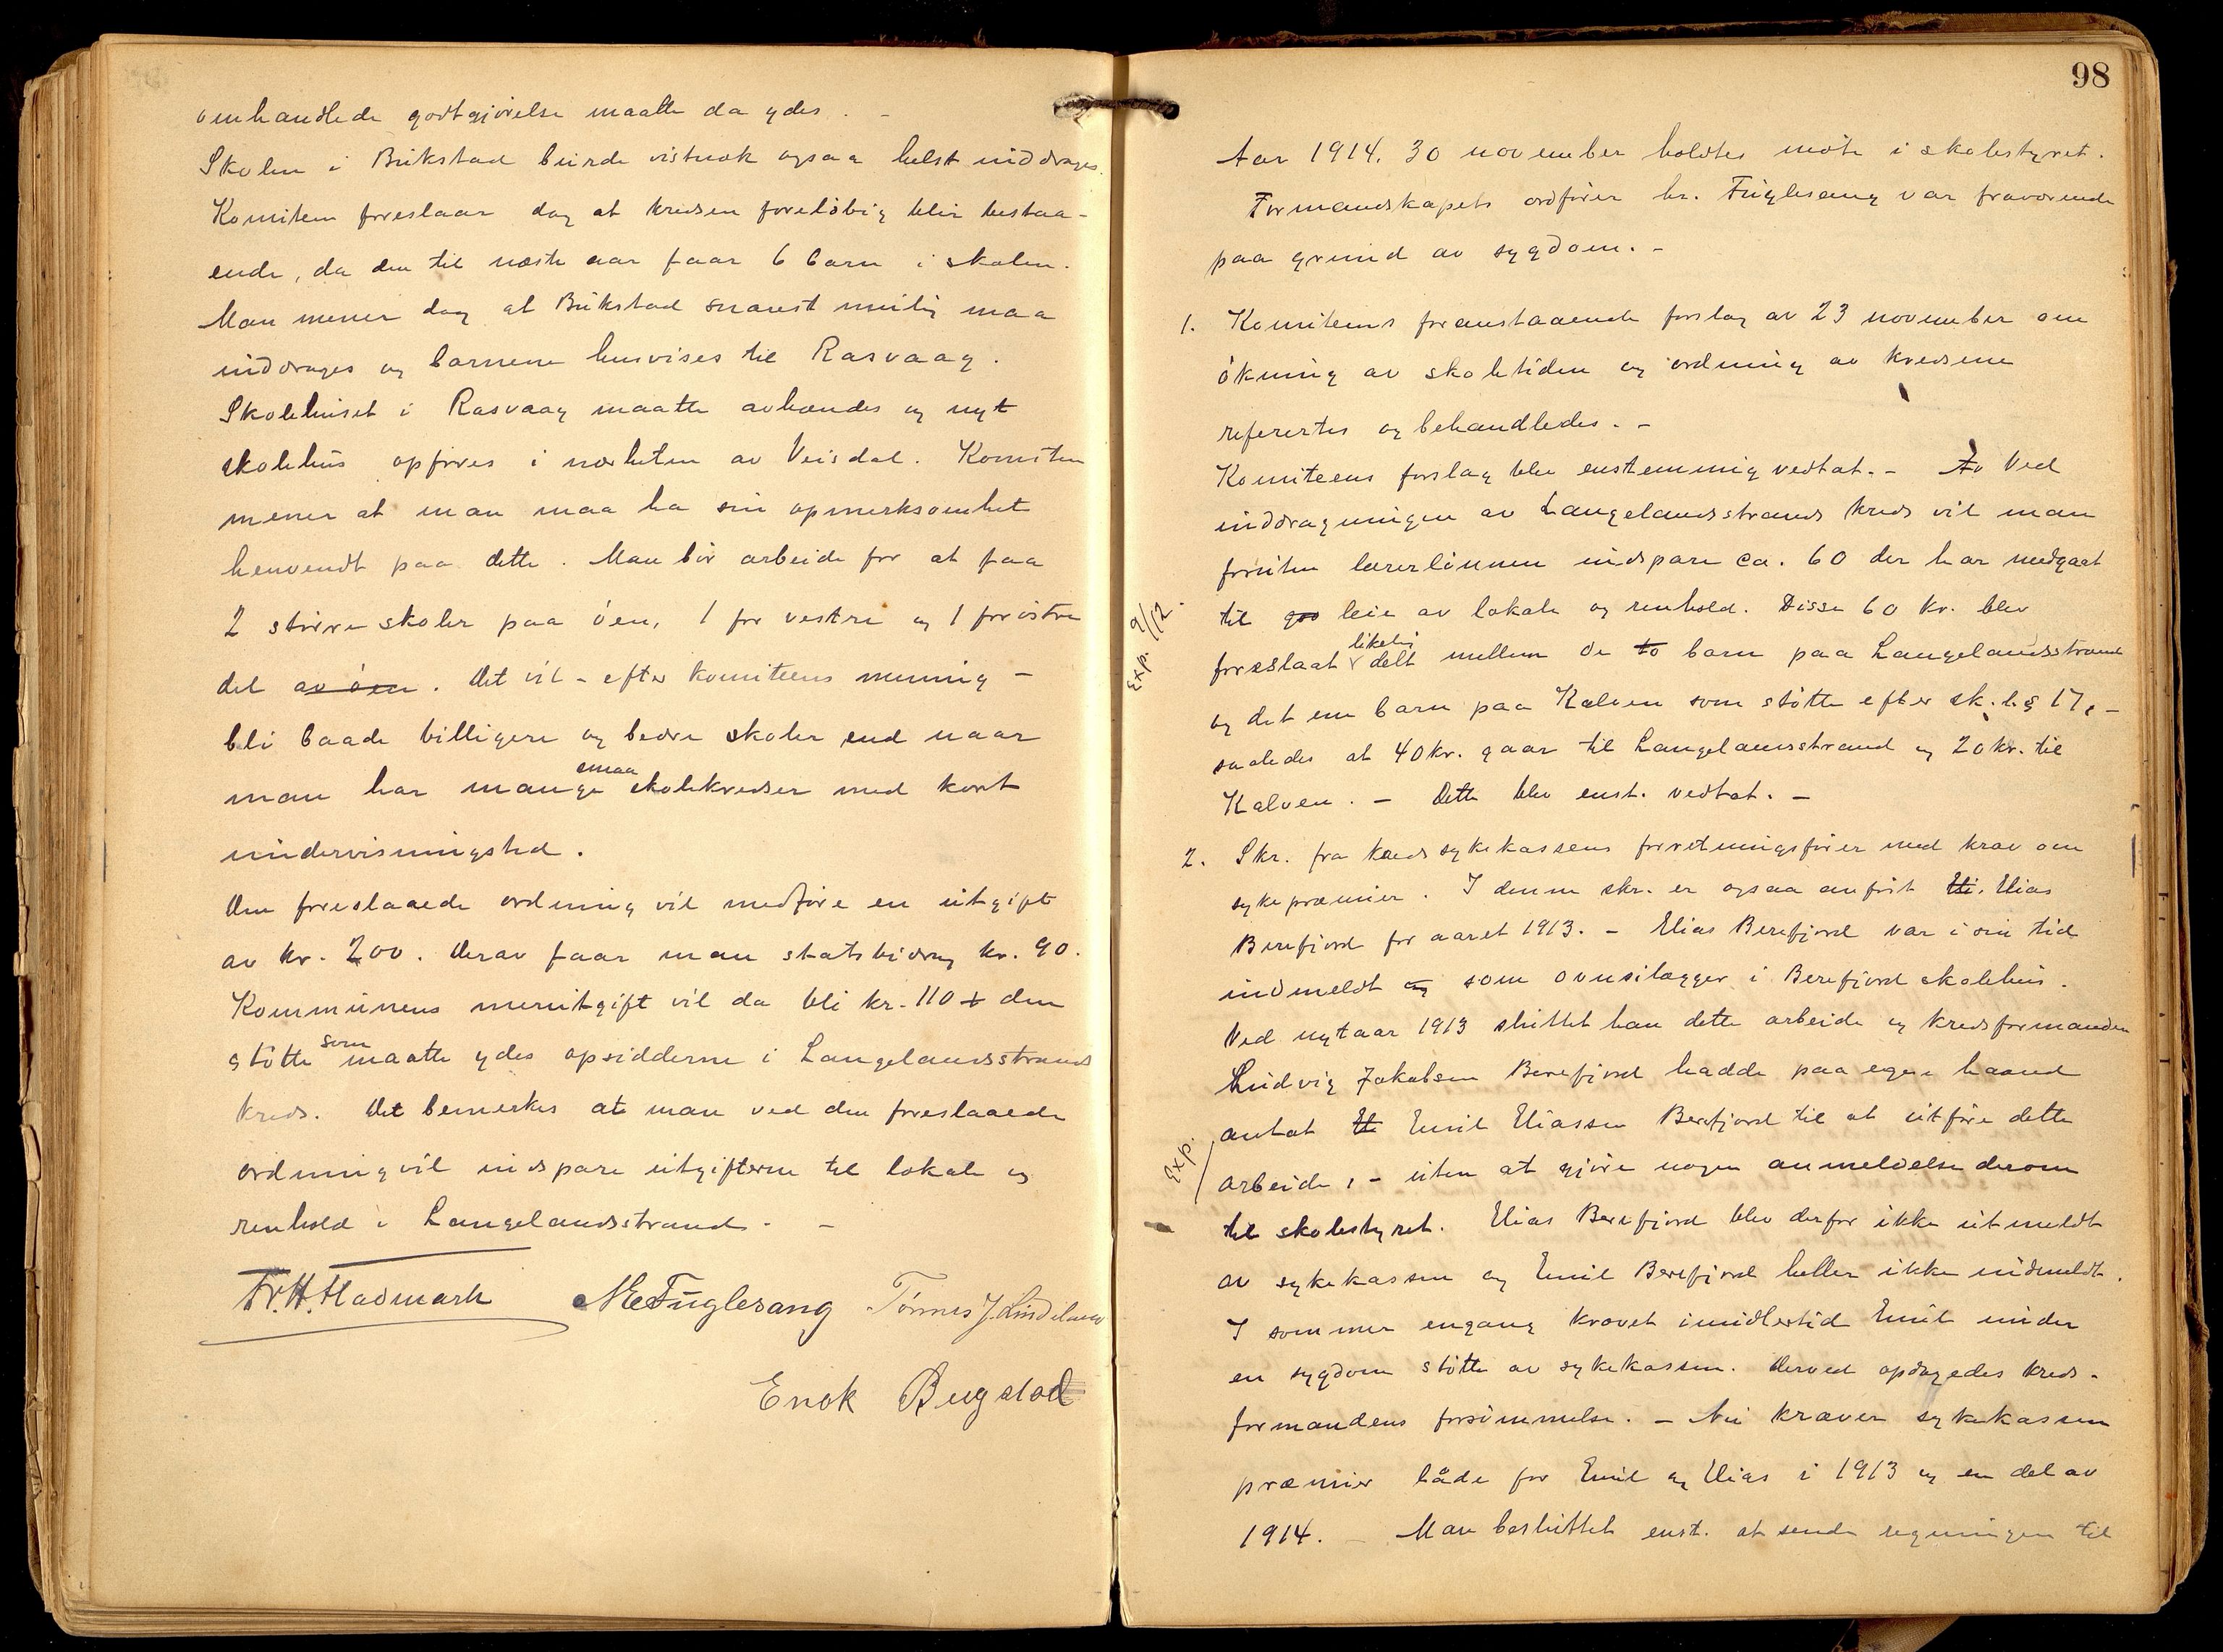 omhandlede godtgjörelse maatte da ydes. -
Skolen i Bukstad burde vistnok ogsaa helst inddrages.
Komiteen foreslaar dog at kredsen forelöbig blir bestaa-
ende, da den til næste aar faar 6 barn i skolen.
Man mener dog at Bukstad snarest mulig maa
inddrages og barnene henvises til Rasvaag.
Skolehuset i Rasvaag maatte avhændes og nyt
skolehus opföres i nærheten av Veisdal. Komiteen
mener at man maa ha sin opmerksomhet
henvendt paa dette. Man bör arbeide for at faa
2 större skoler paa öen, 1 for vestre og 1 for östre
del av öen. Det vil - efter komiteens mening -
bli baade billigere og bedre skoler end naar
man har mange smaa skolekredser med kort
undervisningstid.
Den foreslaaede ordning vil medföre en utgift
av kr. 200. Derav faar man statsbidrag kr. 90.
Kommunens merutgift vil da bli kr. 110 + den
stötte som maatte ydes opsidderne i Langelandsstrands
kreds. Det bemerkes at man ved den foreslaaede
ordning vil indspare utgifterne til lokale og
renhold i Langelandsstrand. -
Fr. H. Hadmark M E Fuglesang Tönnes J. Lindilund
Enok Bugstad
98
Aar 1914. 30 november holdtes möte i skolestyret.
Formandskapets ordförer hr. Fuglesang var fraværende
paa grund av sygdom. -
1. Komiteens foranstaaende forslag av 23 november om
ökning av skoletiden og ordning av kredsene
refertes og behandledes. -
Komiteens forslag blev enstemmig vedtat. - Av Ved
inddragningen av Langelandsstrands kreds vil man
foruten lærerlönnen indspare ca. 60 der har medgaat
Exp. 9/12.
til leie av lokale og renhold. Disse 60 kr. blev
foreslaat likelig delt mellem de to barn paa Langelandsstrand
og det ene barn paa Kalven som stötte efter sk.l. § 17, -
saaledes at 40 kr. gaar til Langelandsstrand og 20 kr. til
Kalven. - Dette blev enst. vedtat. -
2. Skr. fra kredssykekassens forretningsförer med krav om
sykepræmier. I denne skr. er ogsaa anfört Eli. Elias
Berefjord for aaret 1913. - Elias Berefjord var i sin tid
indmeldt og som ovnsilægger i Berefjord skolehus.
Ved nytaar 1913 sluttet han dette arbeide og kredsformanden
Ludvig Jakobsen Berefjord hadde paa egen haand
antat El Emil Eliassen Berefjord til at utföre dette
Exp.
arbeide, - uten at gjöre nogen anmeldelse derom
til skolestyret. Elias Berefjord blev derfor ikke utmeldt
av sykekassen og Emil Berefjord heller ikke indmeldt.
I sommer engang krævet imidlertid Emil under
en sygdom stötte av sykekassen. Derved opdagedes kreds-
formandens forsömmelse. - Nu kræver sykekassen
præmier både for Emil og Elias i 1913 og en del av
1914. - Man besluttet enst. at sende regningen til